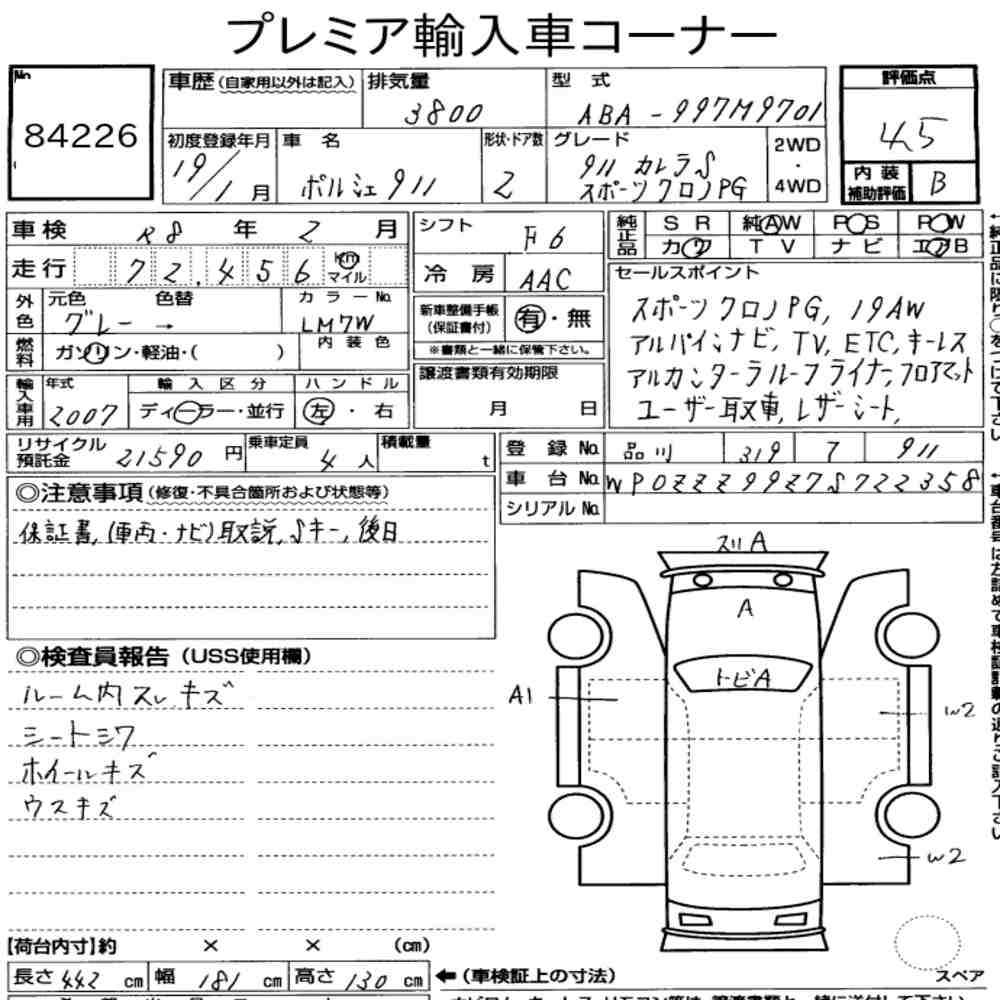 プレミア輸入車コーナー
No. 84226
車歴(自家用以外は記入) 排気量 3800 型式 ABA-997M9701 評価点 4.5
初度登録年月 19/1月 車名 ポルシェ911 形状・ドア数 2 グレード 911 カレラS スポーツクロノPG 2WD・4WD
内装補助評価 B
車検 R8年2月 シフト F6 純正品 SR 純AW PS PW
カワ TV ナビ エアB
走行 72,456 km マイル 冷房 AAC
外色 元色 グレー → 色替 カラーNo. LM7W
内装色
新車整備手帳(保証書付) 有・無
※書類と一緒に保管下さい。
燃料 ガソリン・軽油・( )
セールスポイント
スポーツクロノPG, 19AW
アルパインナビ, TV, ETC, キーレス
アルカンターラルーフライナー, フロアマット
ユーザー取車, レザーシート,
輸入車用 年式 2007 輸入区分 ディーラー・並行 ハンドル 左・右
譲渡書類有効期限 月 日
リサイクル預託金 21590円 乗車定員 4人 積載量 t
登録No. 品川 319 7 911
車台No. WP0ZZZ99Z7S722358
シリアルNo.
◎注意事項(修復・不具合箇所および状態等)
保証書, (車両・ナビ)取説, Sキー, 後日
◎検査員報告(USS使用欄)
ルーム内スレ.キズ
シートシワ
ホイールキズ
ウスキズ
スリA
A
トビA
A1
W2
W2
スペア
【荷台内寸】約 × × (cm)
長さ 442 cm 幅 181 cm 高さ 130 cm ←(車検証上の寸法)